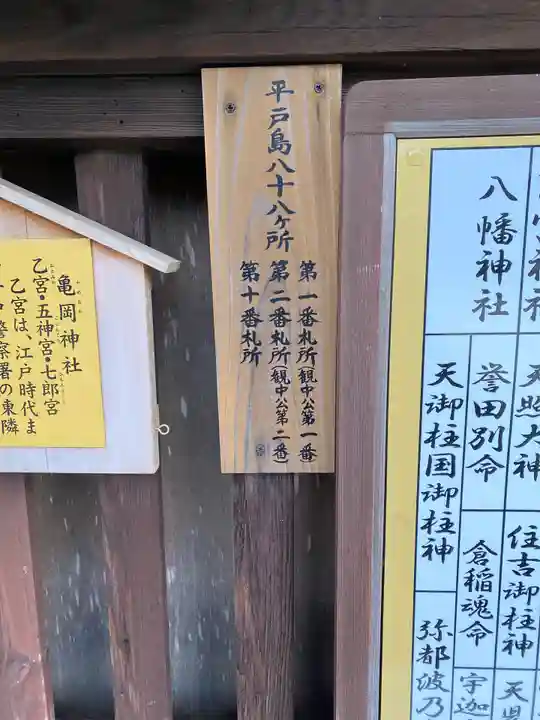 平戸島八十八ヶ所
第一番札所(観中公第一番)
第二番札所(観中公第二番)
第十番札所
亀岡神社
乙宮・五神宮・七郎宮
乙宮は、江戸時代ま
警察署の東隣
八幡神社
天照大神
誉田別命
天御柱国御柱神
住吉御柱神
倉稲魂命
弥都波乃
宇迦